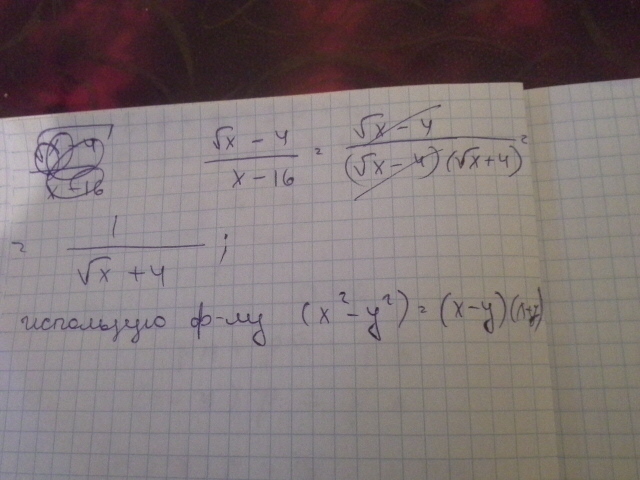 (√x - 4) / (x - 16) = (√x - 4) / ((√x - 4)(√x + 4)) =
= 1 / (√x + 4) ;
использую ф-лу (x² - y²) = (x - y)